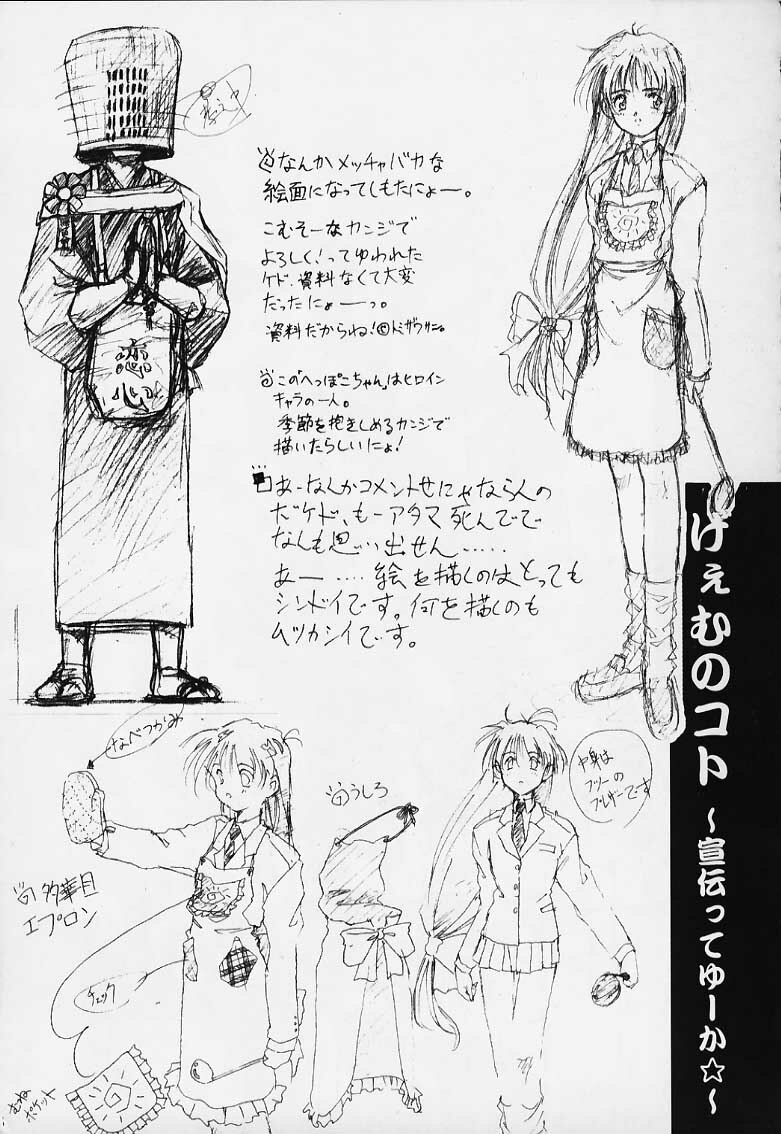 なんかメッチャバカな
絵面になってしもたにょー。
こむそーなカンジで
よろしく!ってゆわれた
ケド、資料なくて大変
だったにょーっ。
資料だからね!©トミザワサン。
この「へっぽこちゃん」はヒロイン
キャラの一人。
季節を抱きしめるカンジで
描いたらしいにょ!
あーなんかコメントせにゃならんの
だケド、もーアタマ死んでで
なんも思い出せん……
あー……絵を描くのはとっても
シンドイです。何を描くのも
ムツカシイです。
恋心
げぇむのコト
～宣伝ってゆーか☆～
なべつかみ
うしろ
中身は
フツーの
ブレザーです
エプロン
チェック
むね
ポケット